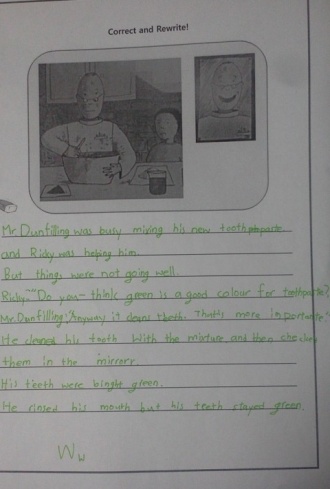 Correct and Rewrite!
Mr. Dunfilling was busy mixing his new toothpaste
and Ricky was helping him.
But things were not going well.
Ricky:"Do you think green is a good colour for toothpaste?
Mr. Dunfilling:"Anyway it cleans theeth. That's more inportante"
He cleaned his teeth With the mixture and then checked
them in the mirrorr.
His teeth were binght green.
He rinsed his mouth but his teeth stayed green.
Ww